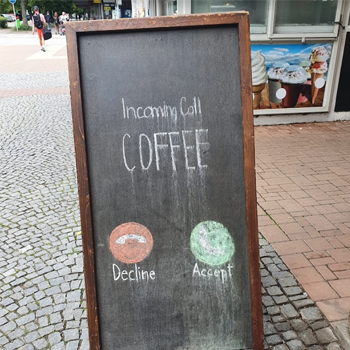 Incoming Call
COFFEE
Decline Accept